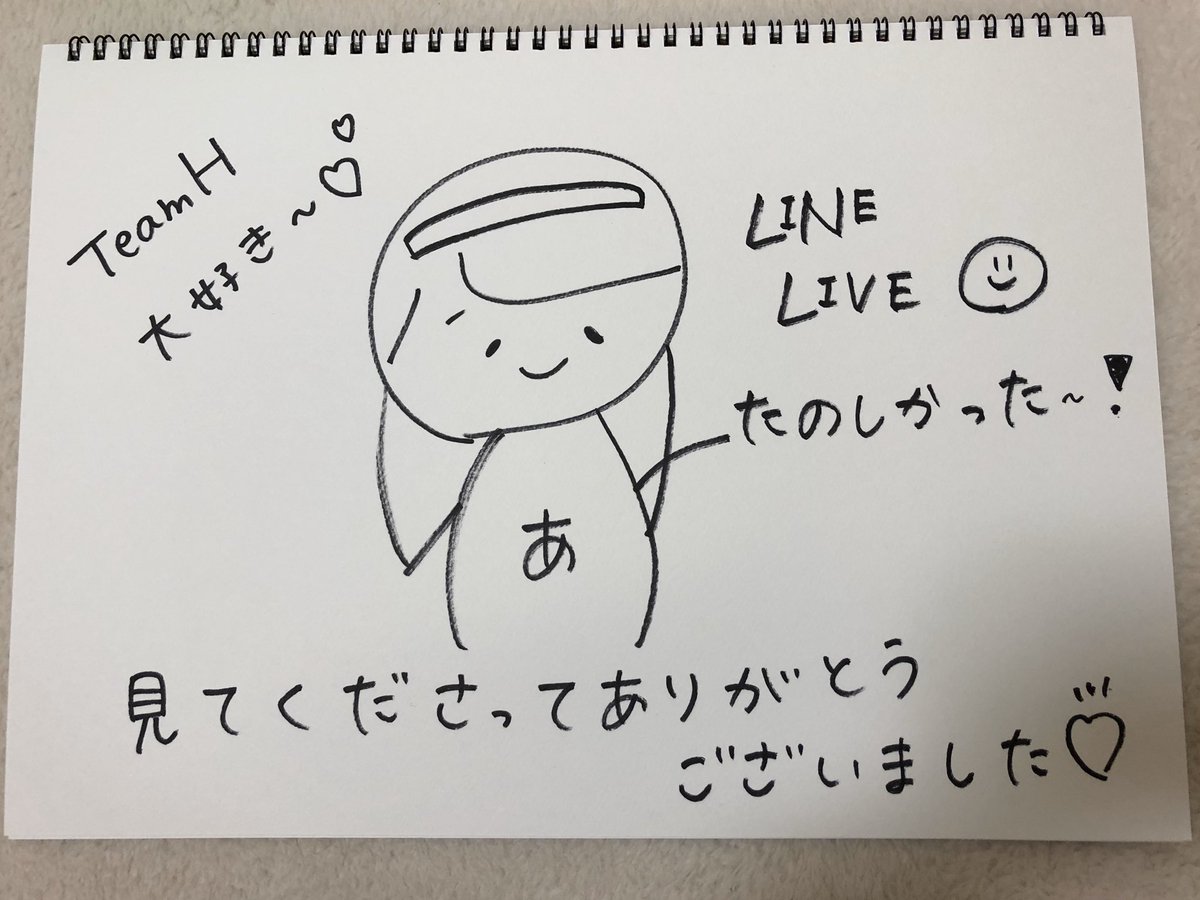 TeamH
大好き～♡♡
LINE
LIVE
たのしかった～!
あ
見てくださってありがとう
ございました♡